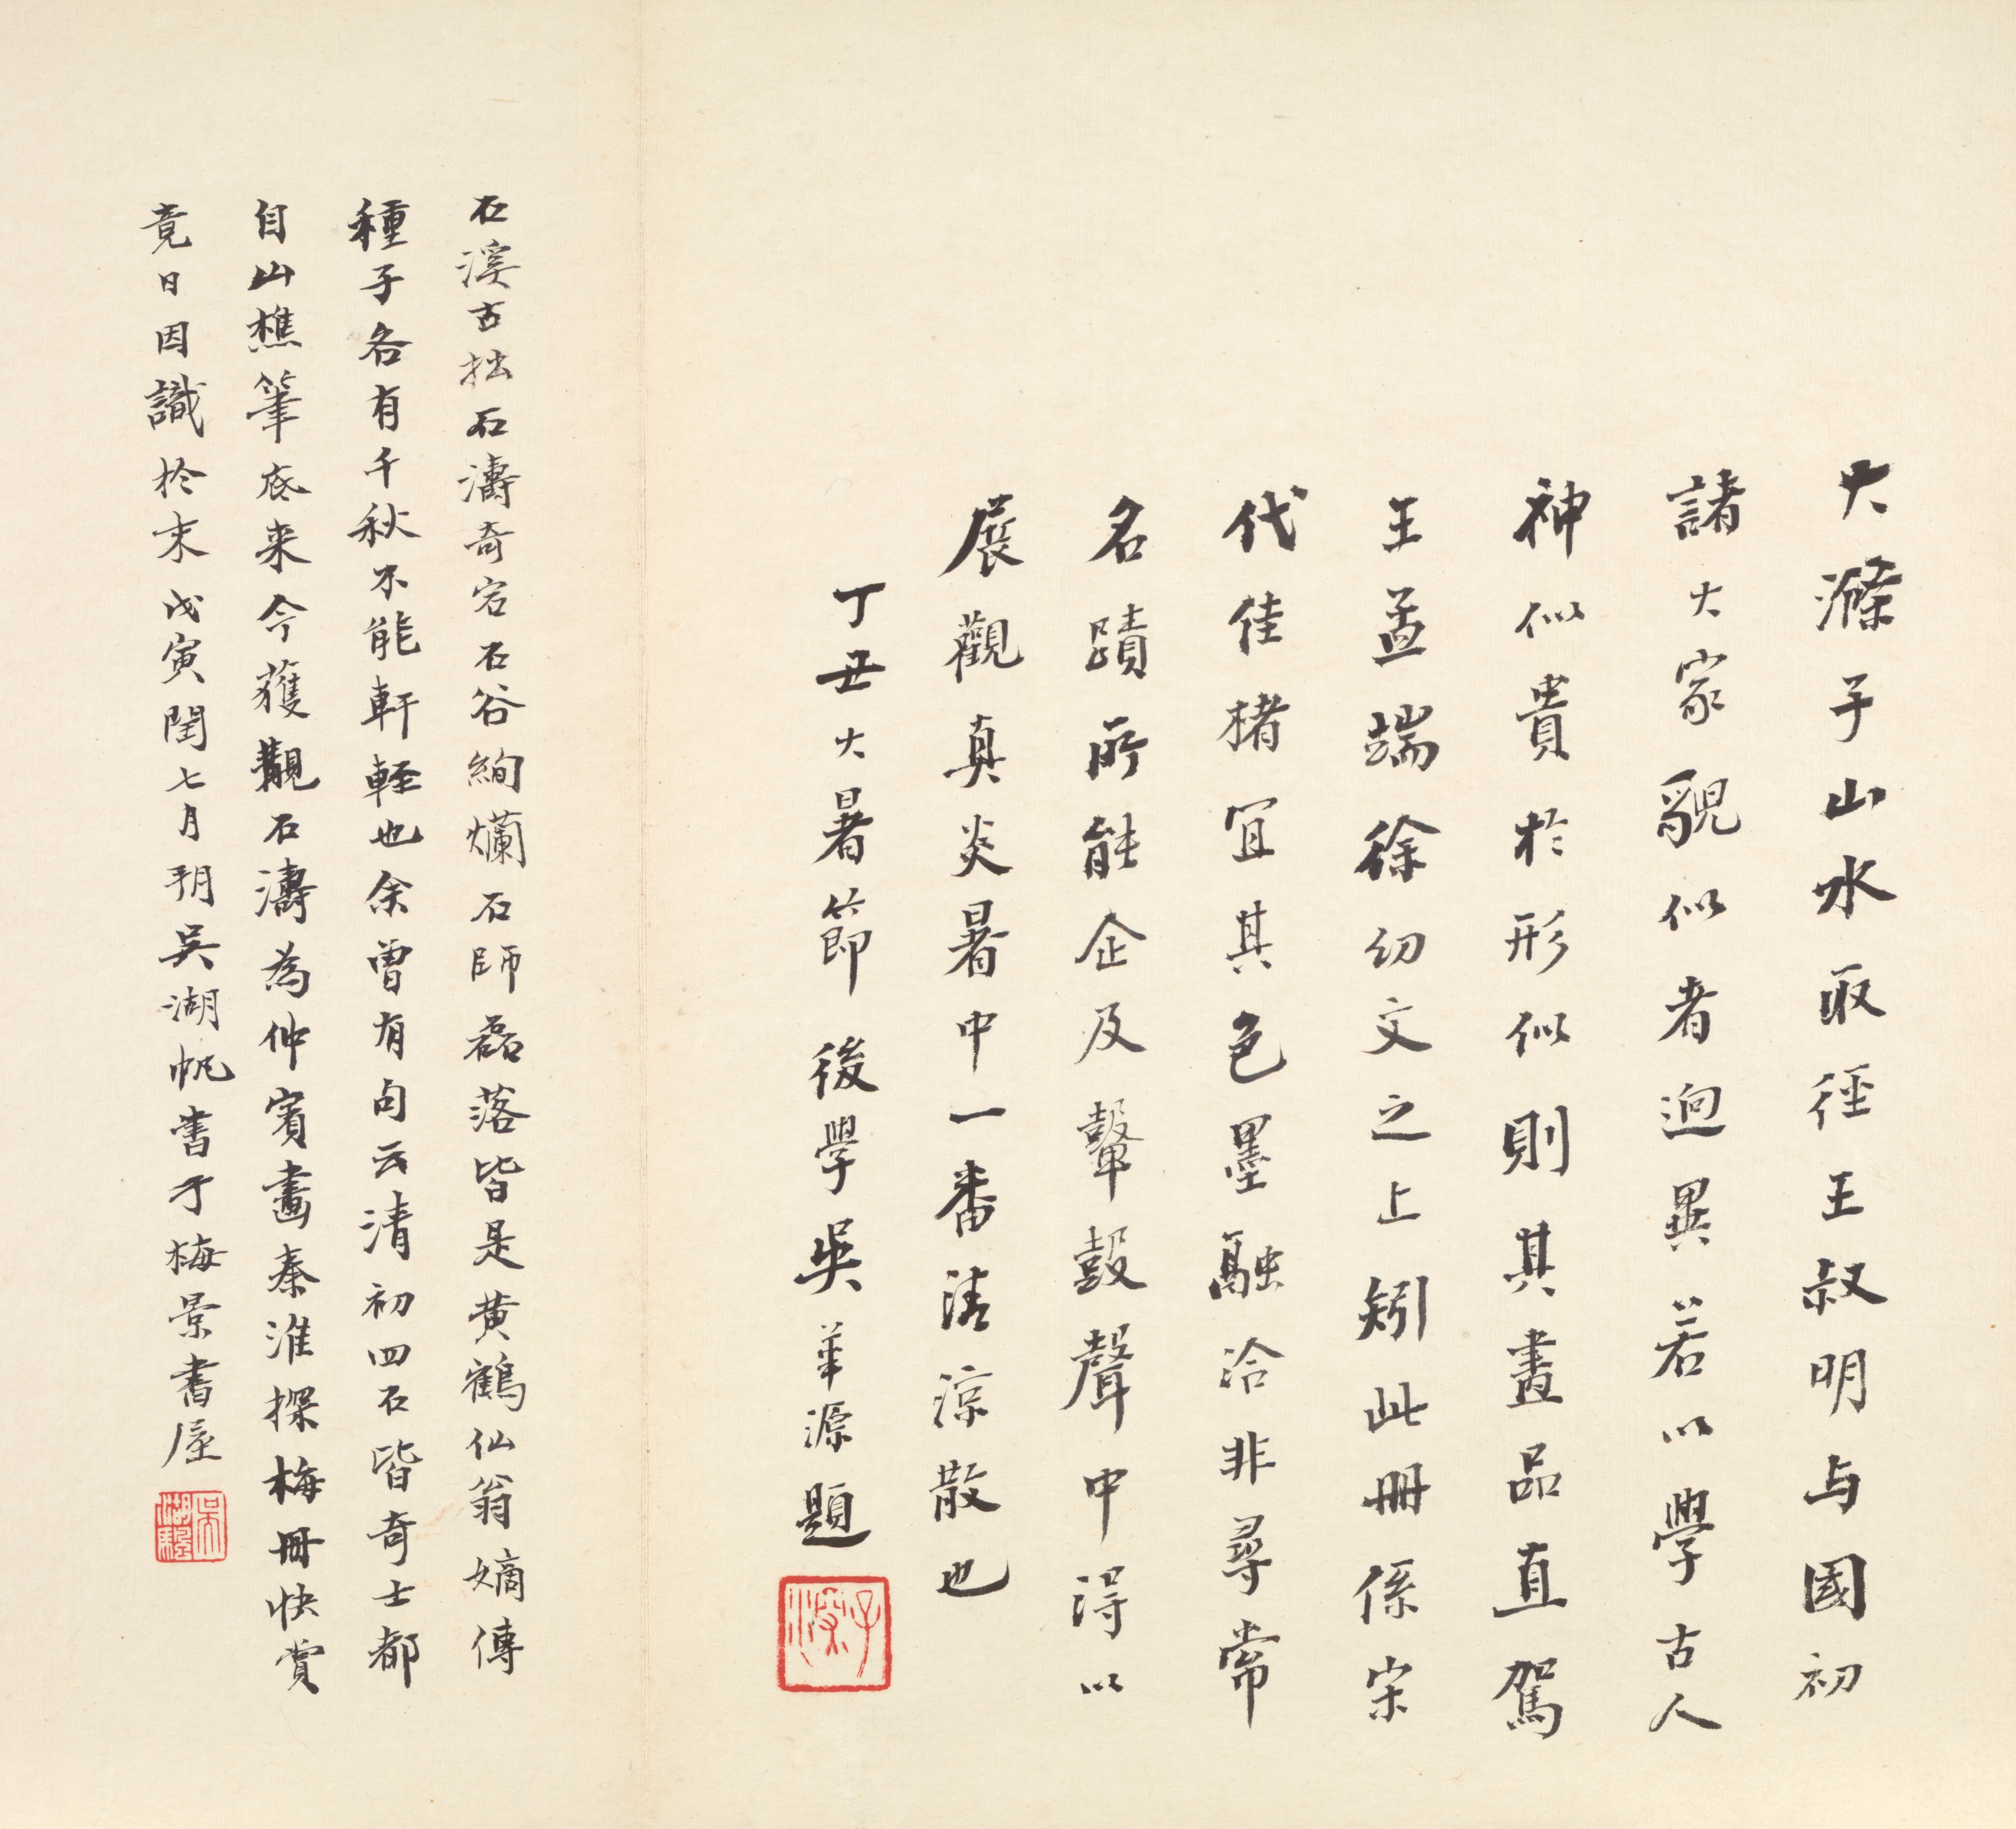 大滌子山水取徑王叔明与國初
諸大家貌似者迥異若以學古人
神似貴於形似則其畫品直駕
王孟端徐幼文之上矧此冊係宋
代佳楮宜其色墨融洽非尋常
名蹟所能企及鼙鼓聲中得以
展觀真炎暑中一番清涼散也
丁丑大暑節後學吳華源題
子深
石溪古拙石濤奇宕石谷絢爛石師磊落皆是黄鶴仙翁嫡傳
種子各有千秋不能軒輊也余曾有句云清初四石皆奇士都
自山樵筆底来今獲觀石濤為仲賓畫秦淮探梅冊快賞
竟日因識於末戊寅閏七月朔吳湖帆書于梅景書屋
吳湖帆